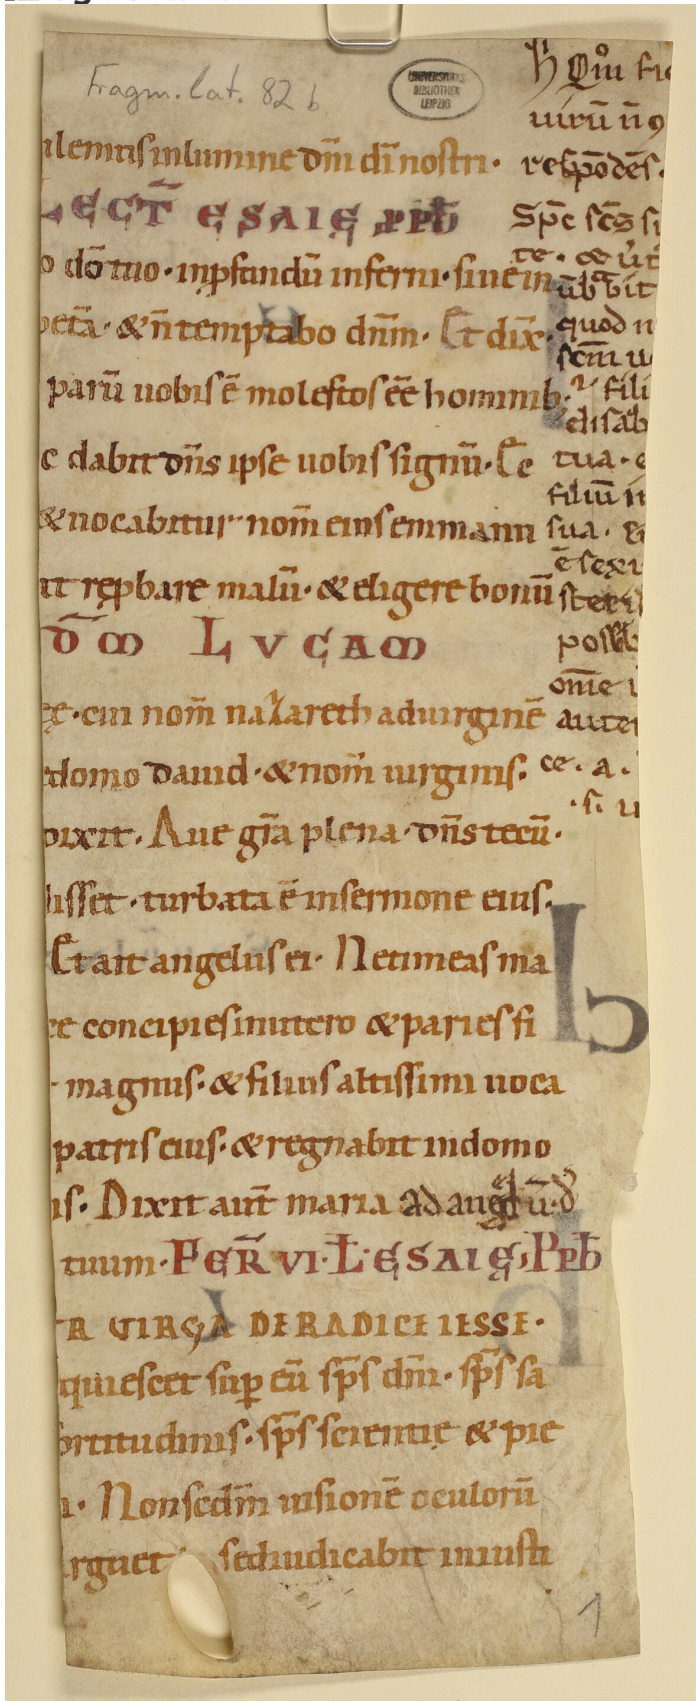 Fragm. lat. 82 b
UNIVERSITÄTS
BIBLIOTHEK
LEIPZIG
ulemus in lumine dñi di nostri·
LECT̄ ESAIE PPħ
o dō tuo· inpfundū inferni· siue in
petā· &ñ temptabo dnm̄· Et dix̄·
parū uobis ē molestos eē hominib·
c dabit dñs ipse uobis signū· Ec
& uocabitur nom̄ eius emmanu
it repbare malū· & eligere bonū
dm̄ LVCAM
ę· cui nom̄ nazareth ad uirginē
e domo dauid· & nom̄ uirginis·
dixit· Aue gr̄a plena· dñs tecū·
disset· turbata ē in sermone eius·
Et ait angelus ei· Ne timeas ma
ce concipies in utero & paries fi
magnus· & filius altissimi uoca
patris eius· & regnabit in domo
is· Dixit aut̄ maria ad angl̄ū·
tuum· FER̄ VI· L̄· ESAIE, PPħ
R VIRGA DE RADICE IESSE·
quiescet sup eū sp̄s dm̄· sp̄s sa
ortitudinis· sp̄s scientię & pie
Non scdm̄ uisionē oculorū
rguet sed iudicabit in iusti
1
Qui
uirū ñ
respōdēs·
Sp̄c sc̄s
te·
quod n
scm̄ u
fili
elisab
tua· e
filiū
sua·
ē sex
poss
om̄e
aute
ce· a·
·si u